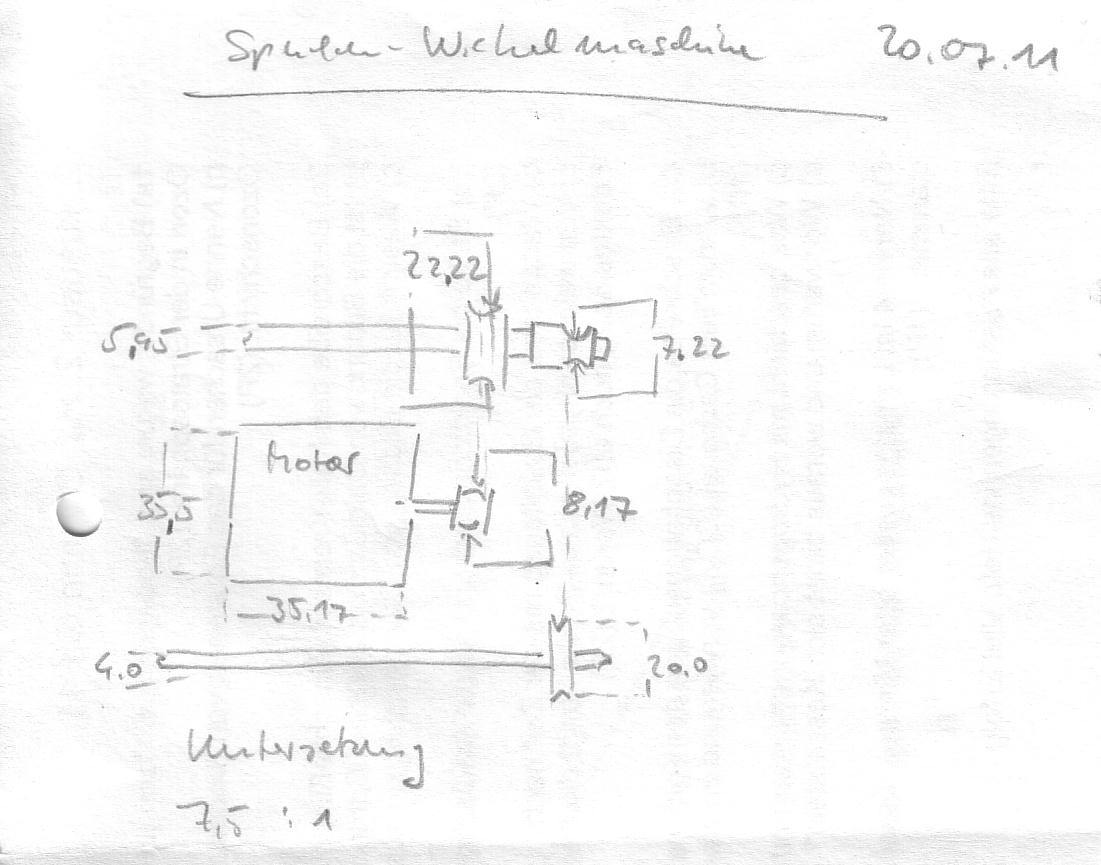 Spulen-Wickelmaschine 20.07.11
22,22
5,95
7,22
Motor
35,5
8,17
35,17
4,0
20,0
Untersetzung
7,5 : 1